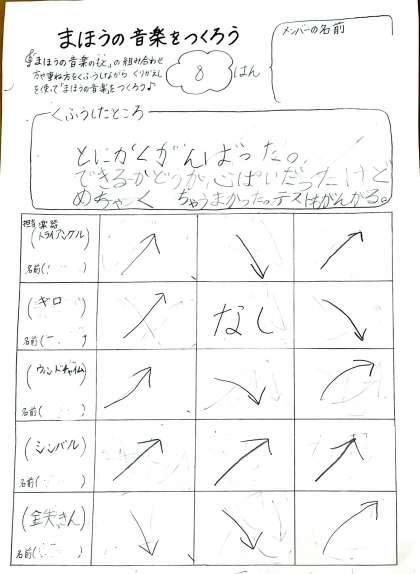 まほうの音楽をつくろう
メンバーの名前
「まほうの音楽のもと」の組み合わせ
方や重ね方をくふうしながら くりかえし
を使って「まほうの音楽」をつくろう♪
8 はん
くふうしたところ
とにかくがんばった。
できるかどうか、心ぱいだったけど
めちゃくちゃうまかった。テストもがんがる。
担当楽器
(トライアングル)
名前( )
(ギロ)
なし
名前( )
(ウィンドチャイム)
名前( )
(シンバル)
名前( )
(鉄きん)
名前( )